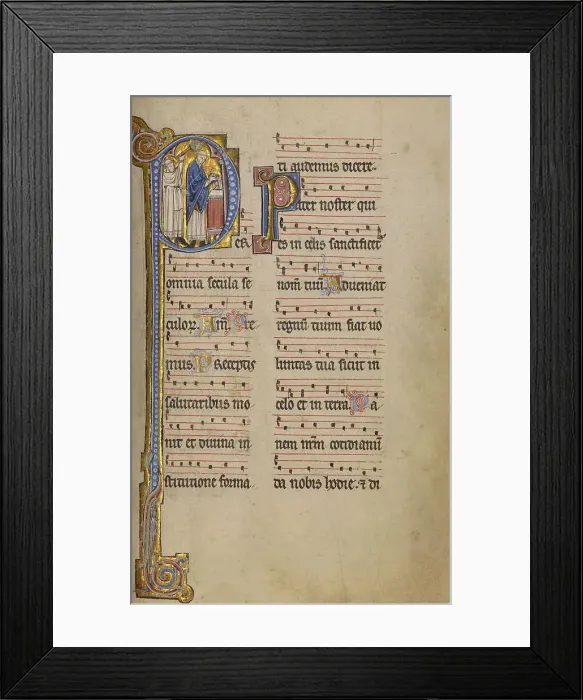 Per
omnia secula se
culoꝝ. Am̄. Ore
mus. Preceptis
salutaribus mo
nit et diuina in
stitutione forma
ti audemus dicere.
Pater noster qui
es in celis sanctificet᷑
nom̄ tuū. Adueniat
regnū tuum fiat uo
luntas tua sicut in
celo et in terra. Pa
nem nr̄m cotidianū
da nobis hodie. ⁊ di